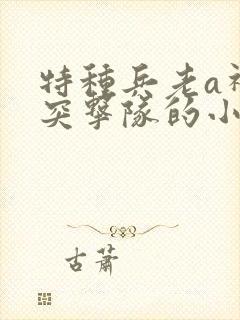 特種兵老a
突擊隊的小
古蕭